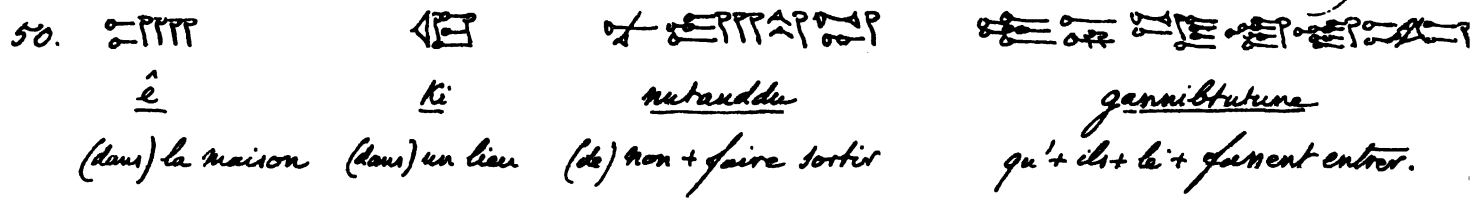 50. 𒂍 𒆠 𒉡𒋫𒌓𒁺
ê Ki nutauddu gannibtutune
(dans) la maison (dans) un lieu (de) non + faire sortir qu'+ ils + le + fassent entrer.